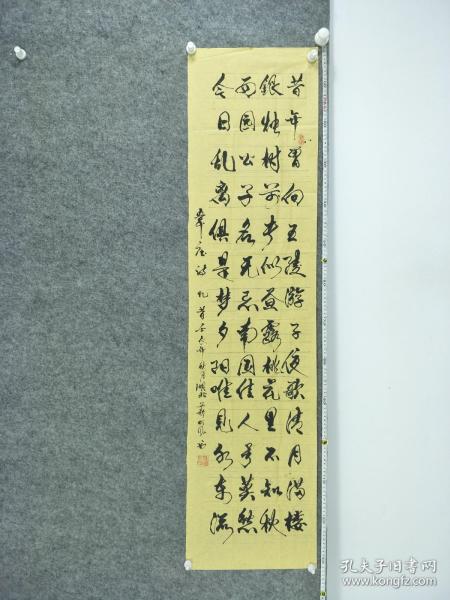 昔年曾向五陵游子夜歌清月满楼
银烛树前长似昼露桃花里不知秋
西园公子名无忌南国佳人号莫愁
今日乱离俱是梦夕阳唯见水东流
韦庄诗 忆昔
孔夫子旧书网
www.kongfz.com